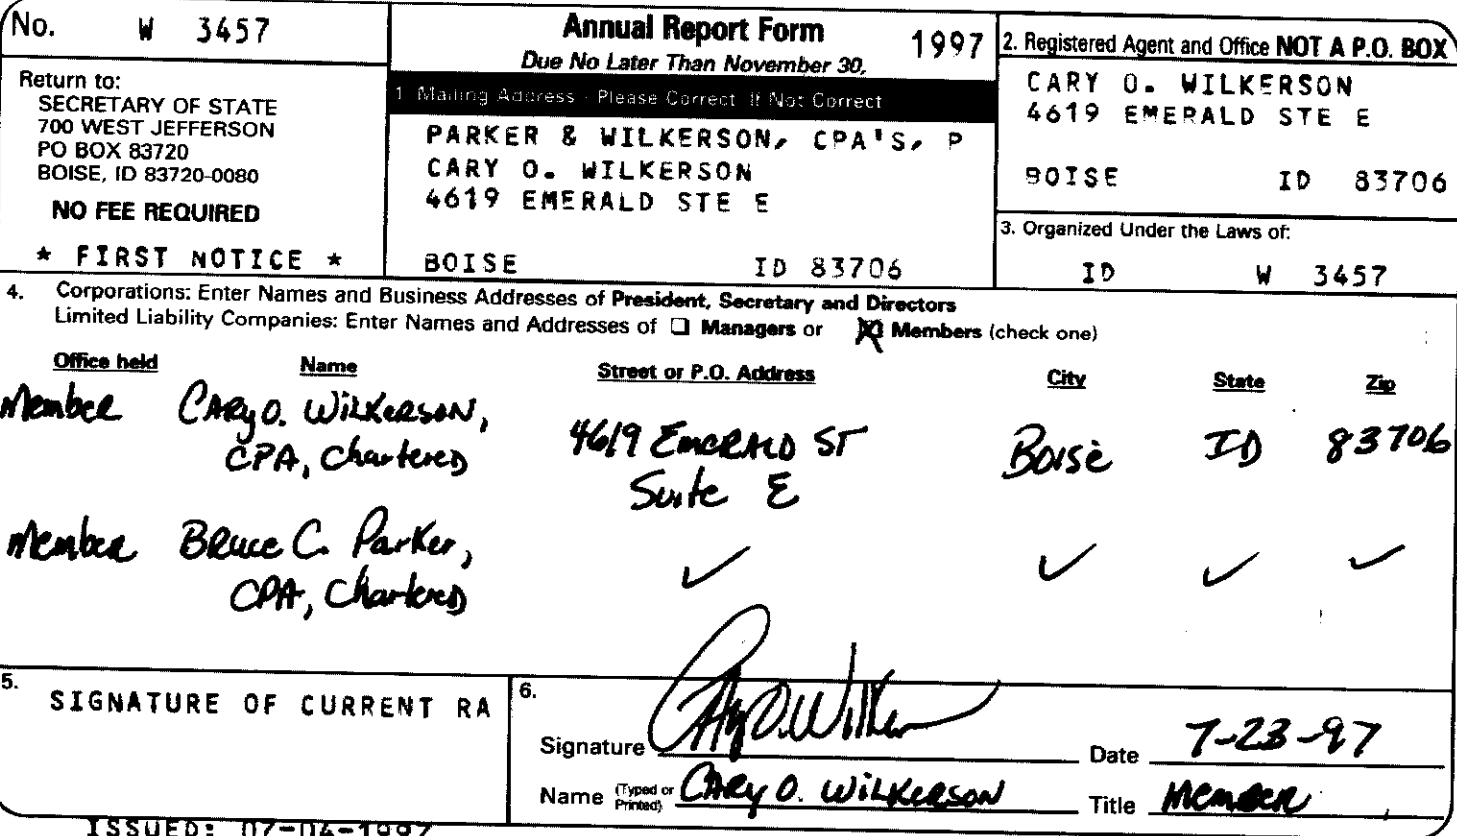 No. W 3457
Annual Report Form 1997
Due No Later Than November 30,
Return to:
SECRETARY OF STATE
700 WEST JEFFERSON
PO BOX 83720
BOISE, ID 83720-0080
NO FEE REQUIRED
* FIRST NOTICE *
1 Mailing Address - Please Correct If Not Correct
PARKER & WILKERSON, CPA'S, P
CARY O. WILKERSON
4619 EMERALD STE E
BOISE ID 83706
2. Registered Agent and Office NOT A P.O. BOX
CARY O. WILKERSON
4619 EMERALD STE E
BOISE ID 83706
3. Organized Under the Laws of:
ID W 3457
4. Corporations: Enter Names and Business Addresses of President, Secretary and Directors
Limited Liability Companies: Enter Names and Addresses of ☐ Managers or ☒ Members (check one)
Office held Name Street or P.O. Address City State Zip
Member Cary O. Wilkerson, 4619 Emerald St Boise ID 83706
CPA, Chartered Suite E
Member Bruce C. Parker, ✓ ✓ ✓ ✓
CPA, Chartered
5. SIGNATURE OF CURRENT RA
6.
Signature Cary O. Wilker Date 7-23-97
Name (Typed or Printed) Cary O. Wilkerson Title Member
ISSUED: 07-04-1997